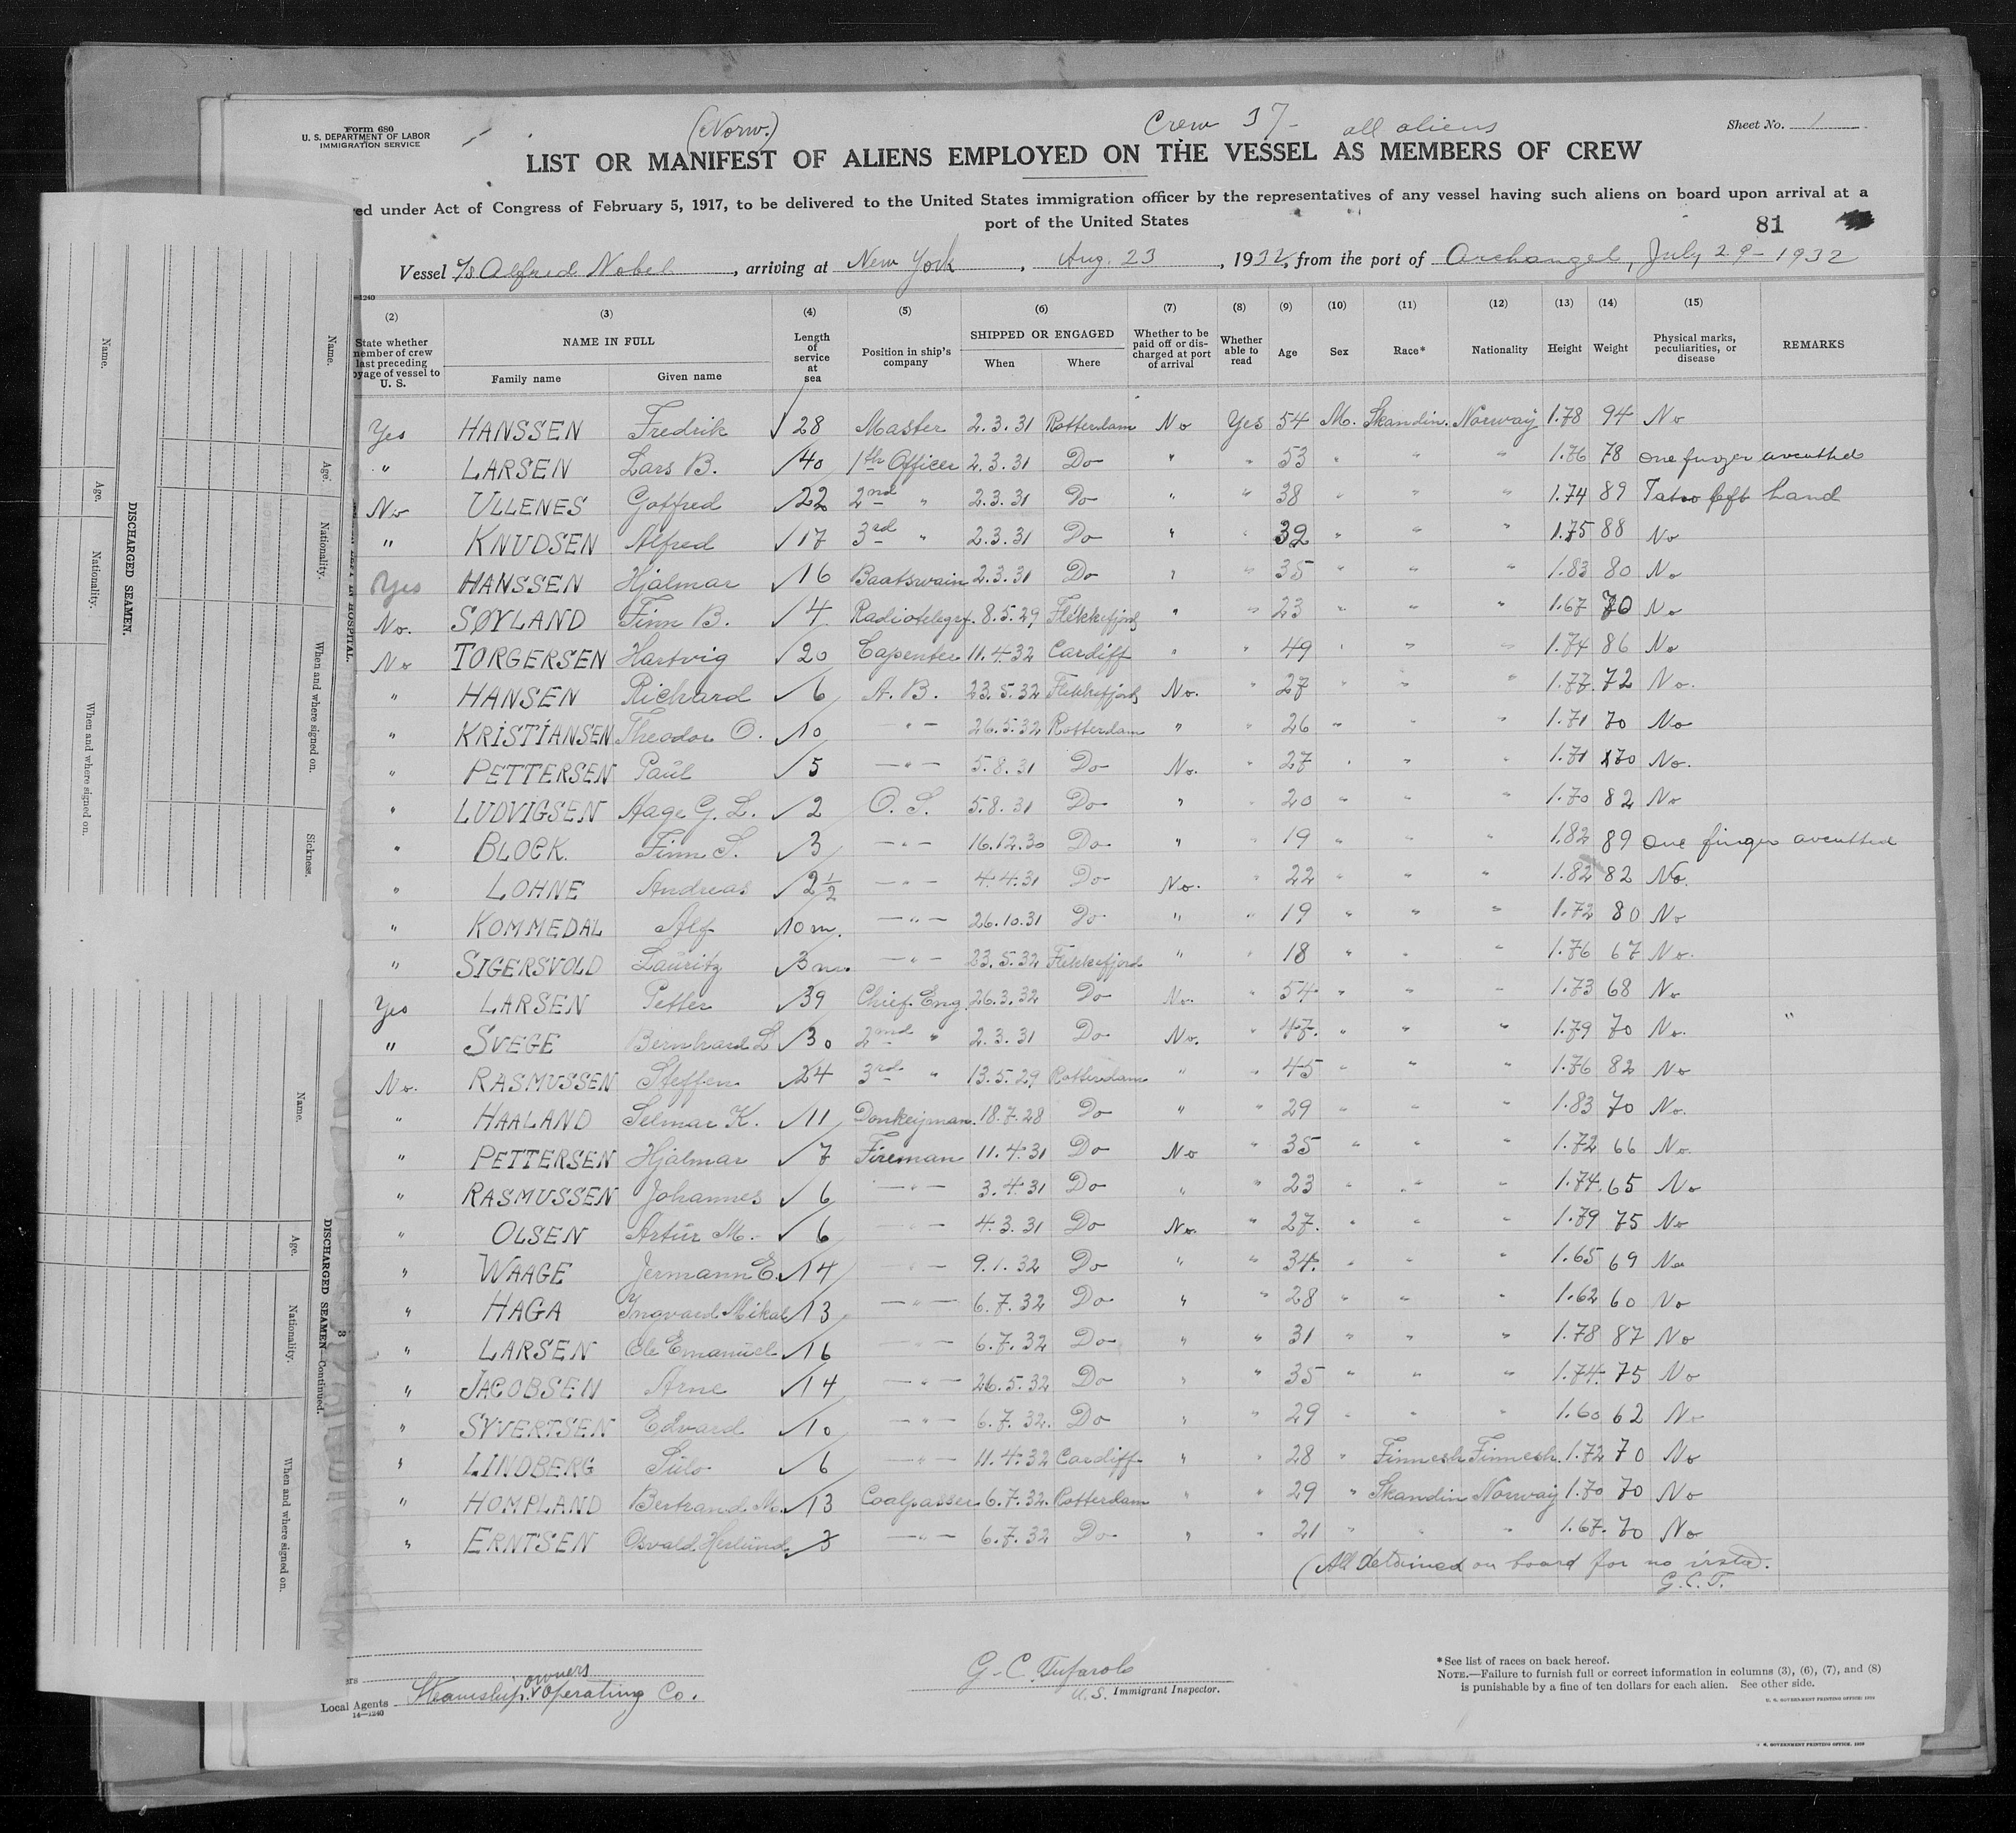 Form 680
U. S. DEPARTMENT OF LABOR
IMMIGRATION SERVICE
(Norw.)
Crew 37 - all aliens
Sheet No. 1
LIST OR MANIFEST OF ALIENS EMPLOYED ON THE VESSEL AS MEMBERS OF CREW
ed under Act of Congress of February 5, 1917, to be delivered to the United States immigration officer by the representatives of any vessel having such aliens on board upon arrival at a
port of the United States
81
Vessel s/s Alfred Nobel, arriving at New York, Aug. 23, 1932, from the port of Archangel, July 29 - 1932
(2) (3) (4) (5) (6) (7) (8) (9) (10) (11) (12) (13) (14) (15)
State whether member of crew last preceding voyage of vessel to U. S. | NAME IN FULL Family name Given name | Length of service at sea | Position in ship's company | SHIPPED OR ENGAGED When Where | Whether to be paid off or discharged at port of arrival | Whether able to read | Age | Sex | Race* | Nationality | Height | Weight | Physical marks, peculiarities, or disease | REMARKS
Yes HANSSEN Fredrik √ 28 Master 2.3.31 Rotterdam No Yes 54 M. Skandin. Norway 1.78 94 No
" LARSEN Lars B. √ 40 1th Officer 2.3.31 Do " " 53 " " " 1.76 78 one finger avcutted
No ULLENES Gotfred √ 22 2nd " 2.3.31 Do " " 38 " " " 1.74 89 Tatoo left hand
" KNUDSEN Alfred √ 17 3rd " 2.3.31 Do " " 32 " " " 1.75 88 No
Yes HANSSEN Hjalmar √ 16 Baatswain 2.3.31 Do " " 35 " " " 1.83 80 No
No. SØYLAND Finn B. √ 4 Radiotelegrf. 8.5.29 Flekkefjord " " 23 " " " 1.67 70 No
No TORGERSEN Hartvig √ 20 Capenter 11.4.32 Cardiff " " 49 " " " 1.74 86 No
" HANSEN Richard √ 6 A. B. 23.5.32 Flekkefjord No. " 27 " " " 1.77 72 No.
" KRISTIANSEN Theodor O. √ 10 — " — 26.5.32 Rotterdam " " 26 " " " 1.71 70 No
" PETTERSEN Paul √ 5 — " — 5.8.31 Do No. " 27 " " " 1.71 70 No.
" LUDVIGSEN Aage G. L. √ 2 O. S. 5.8.31 Do " " 20 " " " 1.70 82 No
" BLOCK Finn S. √ 3 — " — 16.12.30 Do " " 19 " " " 1.82 89 one finger avcutted
" LOHNE Andreas √ 2 1/2 — " — 4.4.31 Do No. " 22 " " " 1.82 82 No.
" KOMMEDAL Alf √ 10 m. — " — 26.10.31 Do " " 19 " " " 1.72 80 No
" SIGERSVOLD Lauritz √ 3 m. — " — 23.5.32 Flekkefjord " " 18 " " " 1.76 67 No.
Yes LARSEN Petter √ 39 Chief. Eng. 26.3.32 Do No. " 54 " " " 1.73 68 No
" SVEGE Bernhard L √ 30 2nd " 2.3.31 Do No. " 47. " " " 1.79 70 No. "
No. RASMUSSEN Steffen √ 24 3rd " 13.5.29 Rotterdam " " 45 " " " 1.76 82 No
" HAALAND Selmar K. √ 11 Donkeyman. 18.7.28 Do " " 29 " " " 1.83 70 No.
" PETTERSEN Hjalmar √ 7 Fireman 11.4.31 Do No " 35 " " " 1.72 66 No.
" RASMUSSEN Johannes √ 6 — " — 3.4.31 Do " " 23 " " " 1.74 65 No
" OLSEN Artur M. √ 6 — " — 4.3.31 Do No. " 27. " " " 1.79 75 No
" WAAGE Jermann E. √ 14 — " — 9.1.32 Do " " 34. " " " 1.65 69 No
" HAGA Ingvard Mikal √ 13 — " — 6.7.32 Do " " 28 " " " 1.62 60 No
" LARSEN Ole Emanuel √ 16 — " — 6.7.32 Do " " 31 " " " 1.78 87 No
" JACOBSEN Arne √ 14 — " — 26.5.32 Do " " 35 " " " 1.74. 75 No
" SYVERTSEN Edvard √ 10 — " — 6.7.32. Do " " 29 " " " 1.60 62 No
" LINDBERG Sulo √ 6 — " — 11.4.32 Cardiff " " 28 " Finnesh Finnesh. 1.72 70 No
" HOMPLAND Bertrand M. √ 13 Coalpasser 6.7.32. Rotterdam " " 29 " Skandin Norway 1.70 70 No
" ERNTSEN Osvald. Herlund √ 3 — " — 6.7.32 Do " " 21 " " " 1.67. 70 No
(All detained on board for no
G. C. T.
Local Agents Steamship owners Operating Co.
14—1240
G. C. Tufarolo
U.S. Immigrant Inspector.
*See list of races on back hereof.
NOTE.—Failure to furnish full or correct information in columns (3), (6), (7), and (8)
is punishable by a fine of ten dollars for each alien. See other side.
U. S. GOVERNMENT PRINTING OFFICE
U. S. GOVERNMENT PRINTING OFFICE
DISCHARGED SEAMEN.
Name.
Age.
Nationality.
When and where signed on.
LEFT IN HOSPITAL.
Name.
Age.
Nationality.
When and where signed on.
Sickness.
3
DISCHARGED SEAMEN—Continued.
Name.
Age.
Nationality.
When and where signed on.